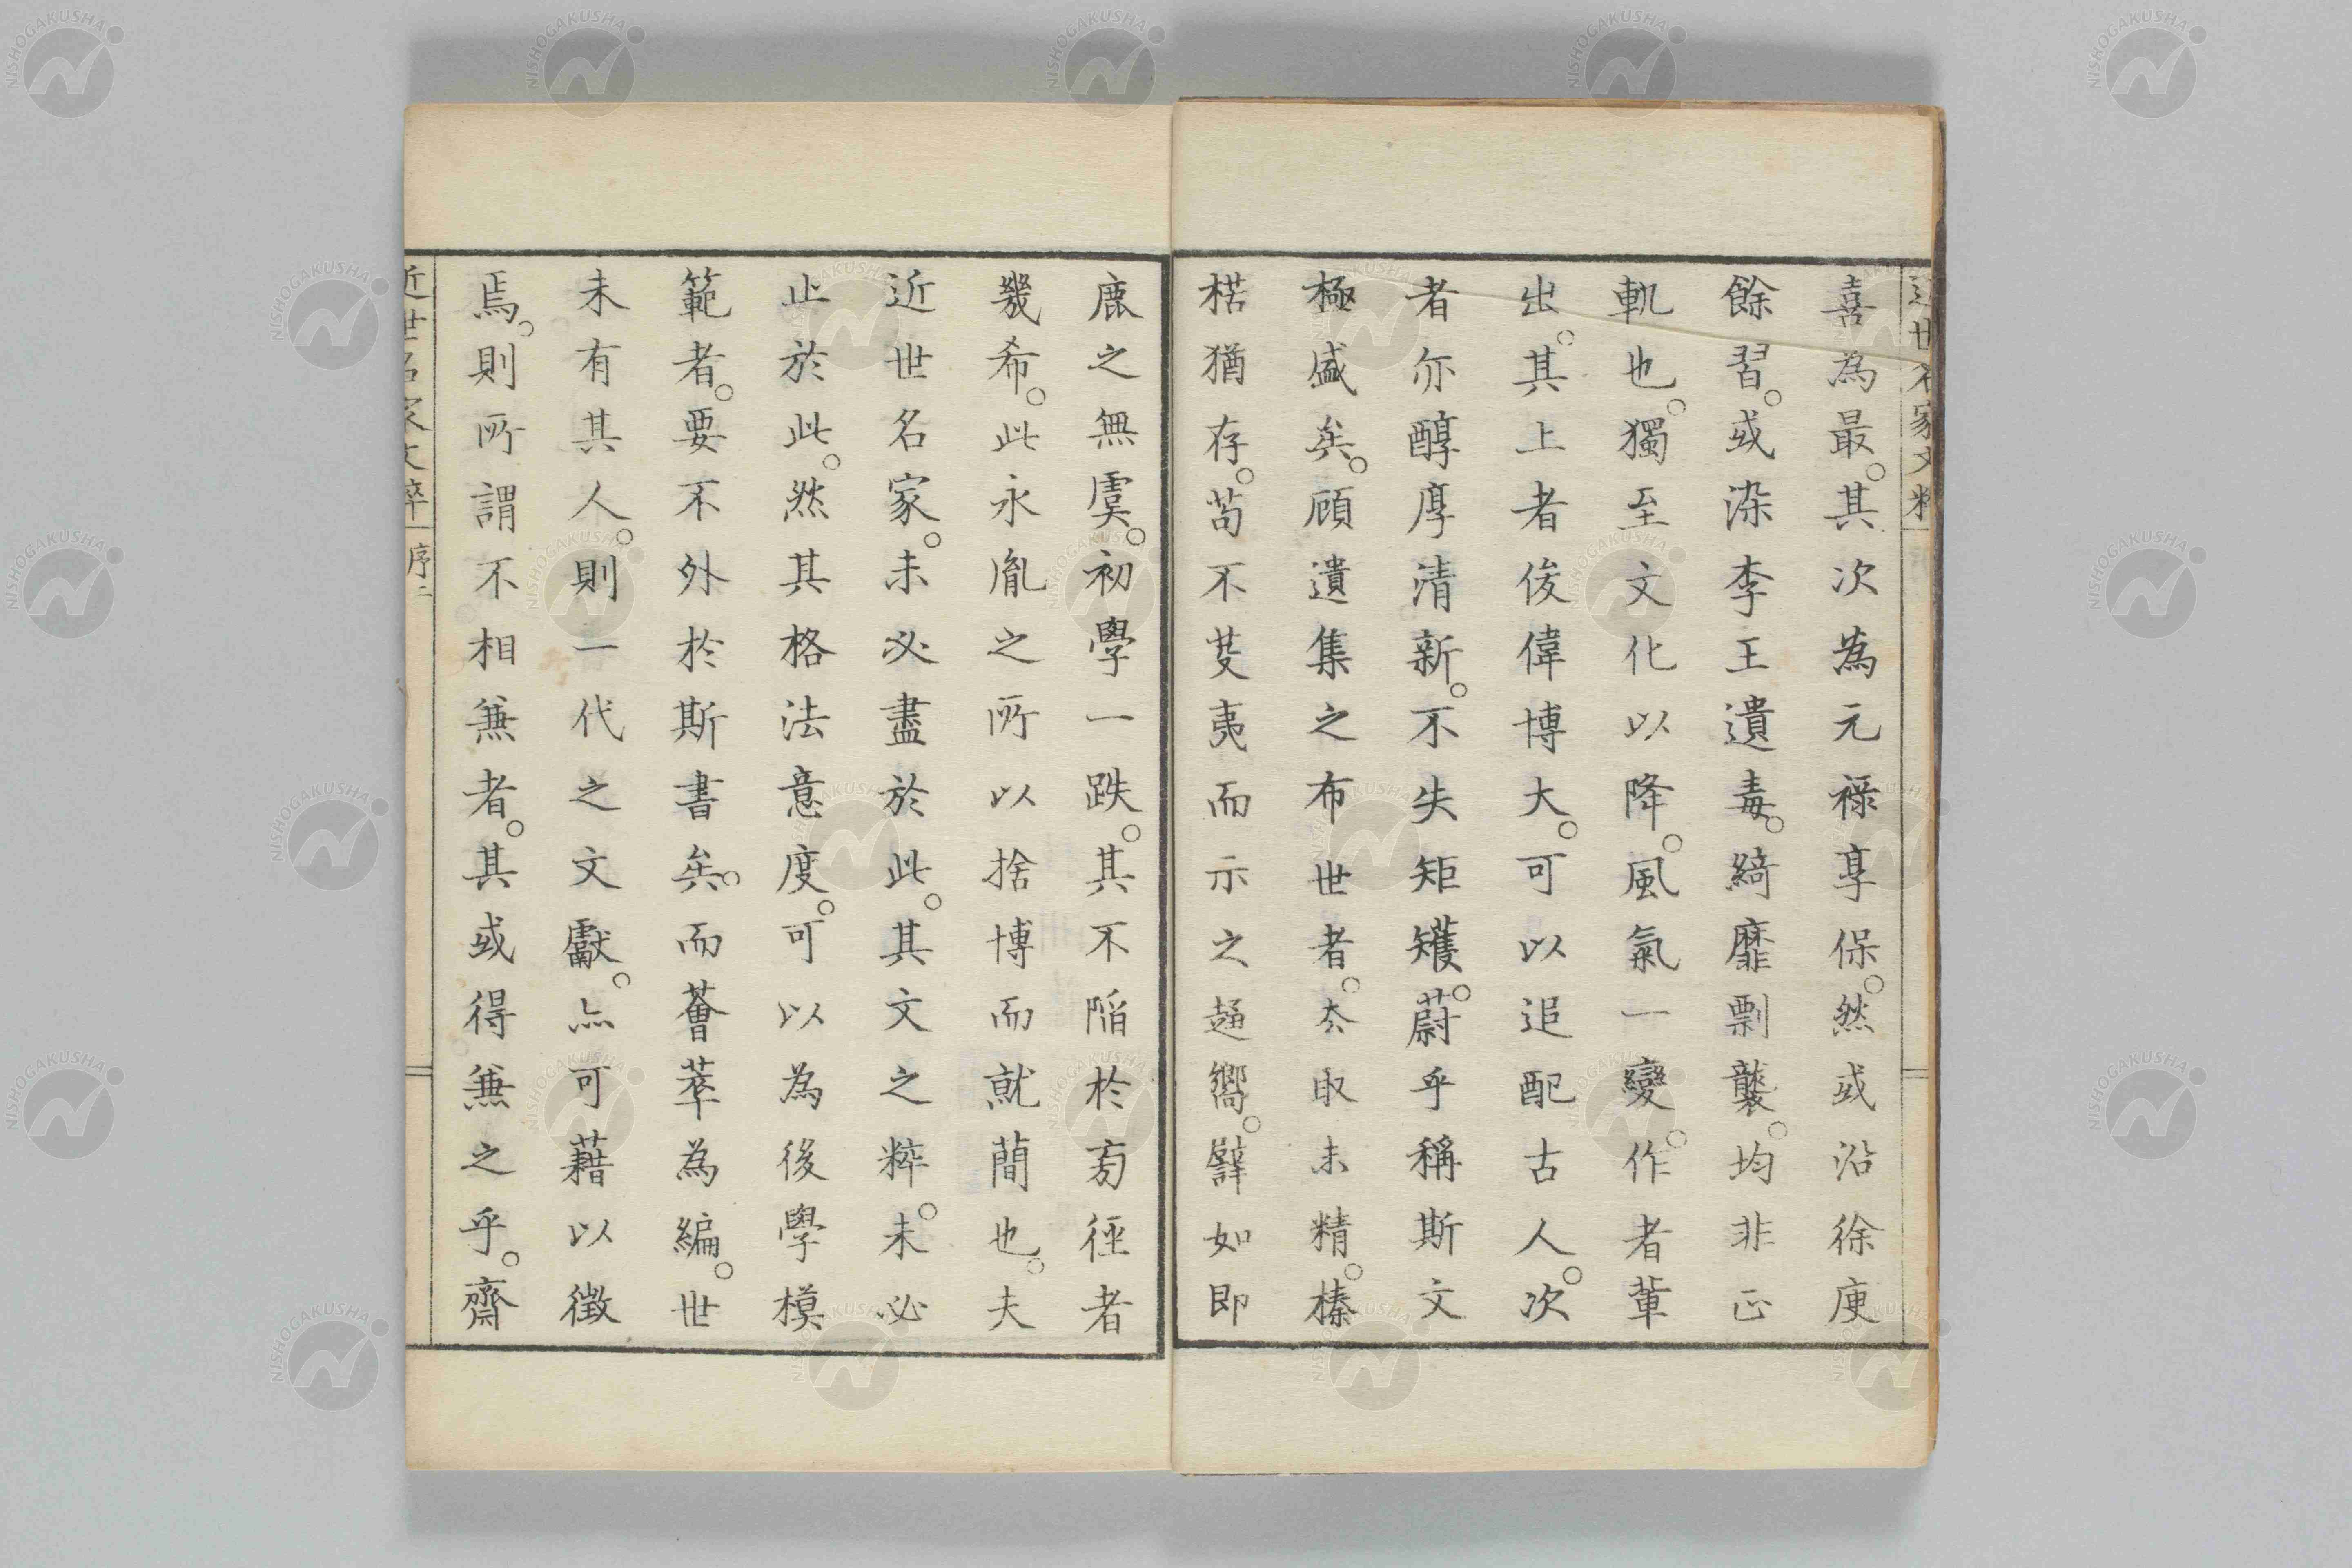 喜為最。其次為元祿享保。然或沿徐庾
餘習。或染李王遺毒。綺靡剽襲。均非正
軌也。獨至文化以降。風氣一變。作者輩
出。其上者俊偉博大。可以追配古人。次
者亦醇厚清新。不失矩矱。蔚乎稱斯文
極盛矣。顧遺集之布世者。夲取未精。榛
楛猶存。苟不芟夷而示之趨嚮。譬如即
鹿之無虞。初學一跌。其不陷於旁徑者
幾希。此永胤之所以捨博而就簡也。夫
近世名家。未必盡於此。其文之粹。未必
止於此。然其格法意度。可以為後學模
範者。要不外於斯書矣。而薈萃為編。世
未有其人。則一代之文獻。亦可藉以徵
焉。則所謂不相兼者。其或得兼之乎。齋
近世名家文粹 序 二
NISHOGAKUSHA